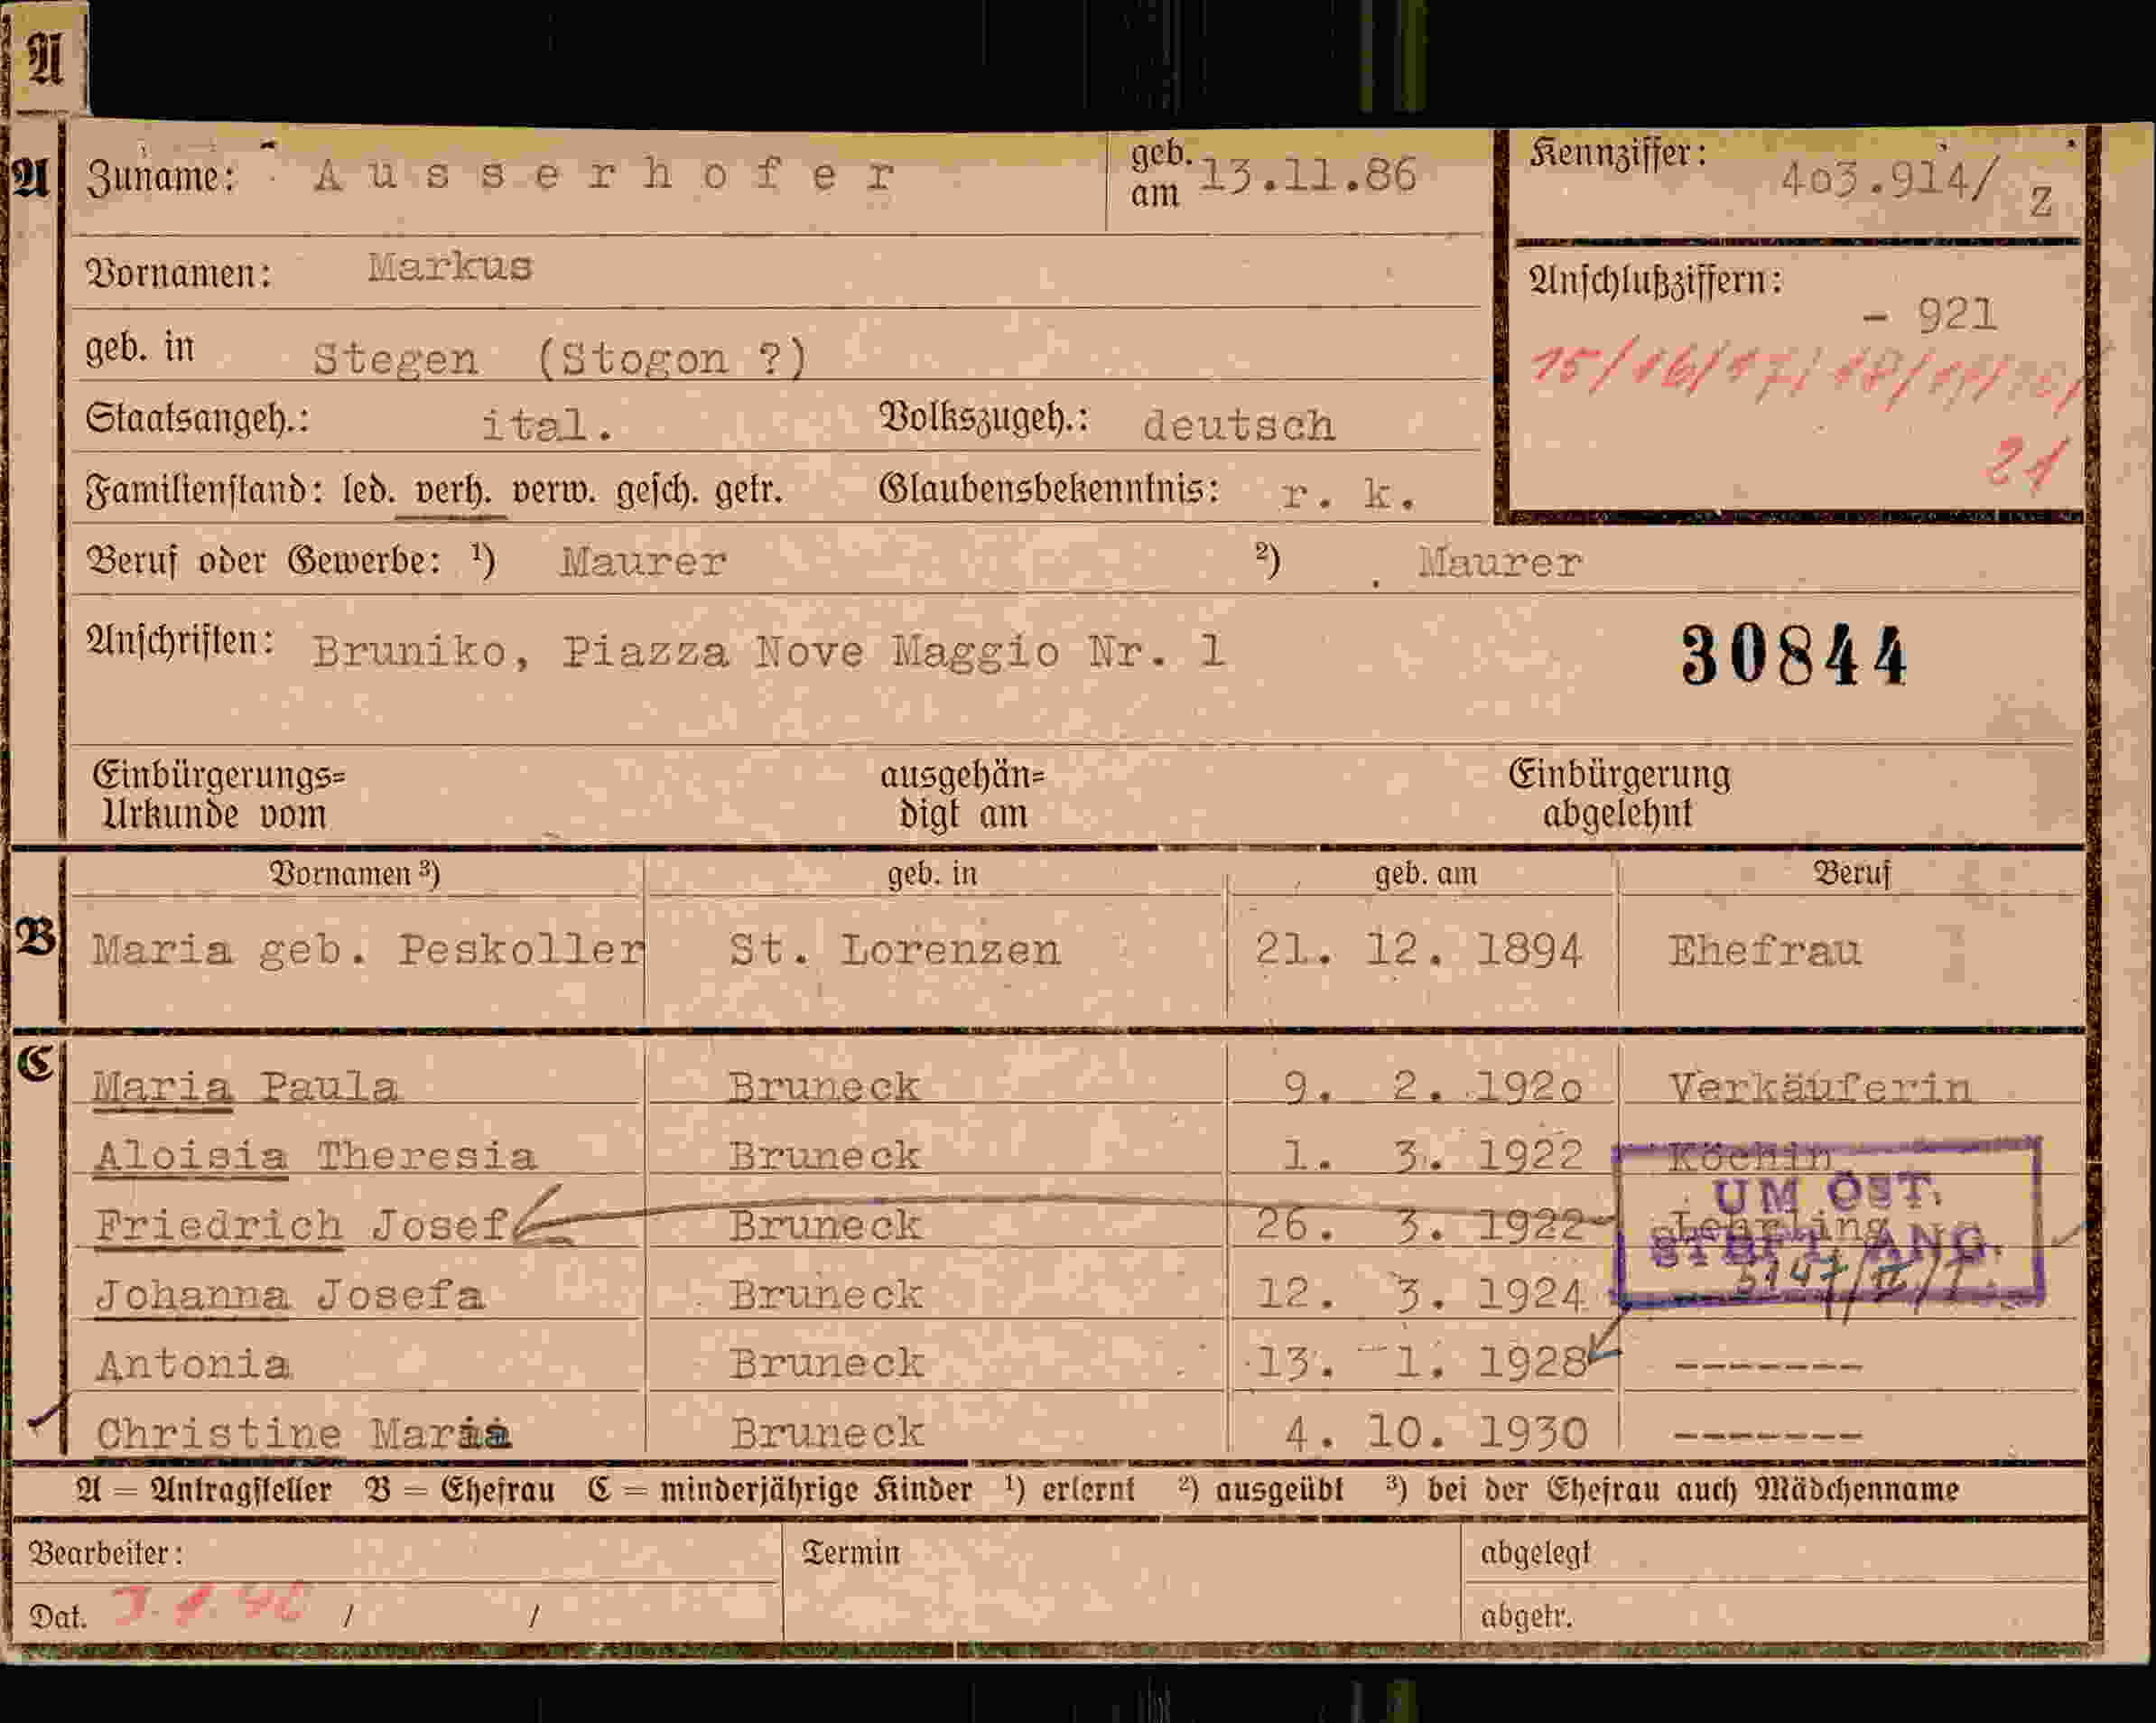 A
A Zuname: Ausserhofer geb. am 13.11.86 Kennziffer: 403.914/ Z
Vornamen: Markus
Anschlußziffern: - 921
geb. in Stegen (Stogon ?)
15/16/17/18/19/20/
21
Staatsangeh.: ital. Volkszugeh.: deutsch
Familienstand: led. verh. verw. gesch. getr. Glaubensbekenntnis: r. k.
Beruf oder Gewerbe: ¹) Maurer ²) Maurer
Anschriften: Bruniko, Piazza Nove Maggio Nr. 1 30844
Einbürgerungs= ausgehän= Einbürgerung
Urkunde vom digt am abgelehnt
Vornamen ³) geb. in geb. am Beruf
B Maria geb. Peskoller St. Lorenzen 21. 12. 1894 Ehefrau
C
Maria Paula Bruneck 9. 2. 192o Verkäuferin
Aloisia Theresia Bruneck 1. 3. 1922 Köchin
UM OST.
Friedrich Josef Bruneck 26. 3. 1922 Lehrling
ANG.
Johanna Josefa Bruneck 12. 3. 1924
Antonia Bruneck 13. 1. 1928 -------
Christine Maria Bruneck 4. 10. 1930 -------
A = Antragsteller B = Ehefrau C = minderjährige Kinder ¹) erlernt ²) ausgeübt ³) bei der Ehefrau auch Mädchenname
Bearbeiter: Termin abgelegt
Dat. / / abgetr.